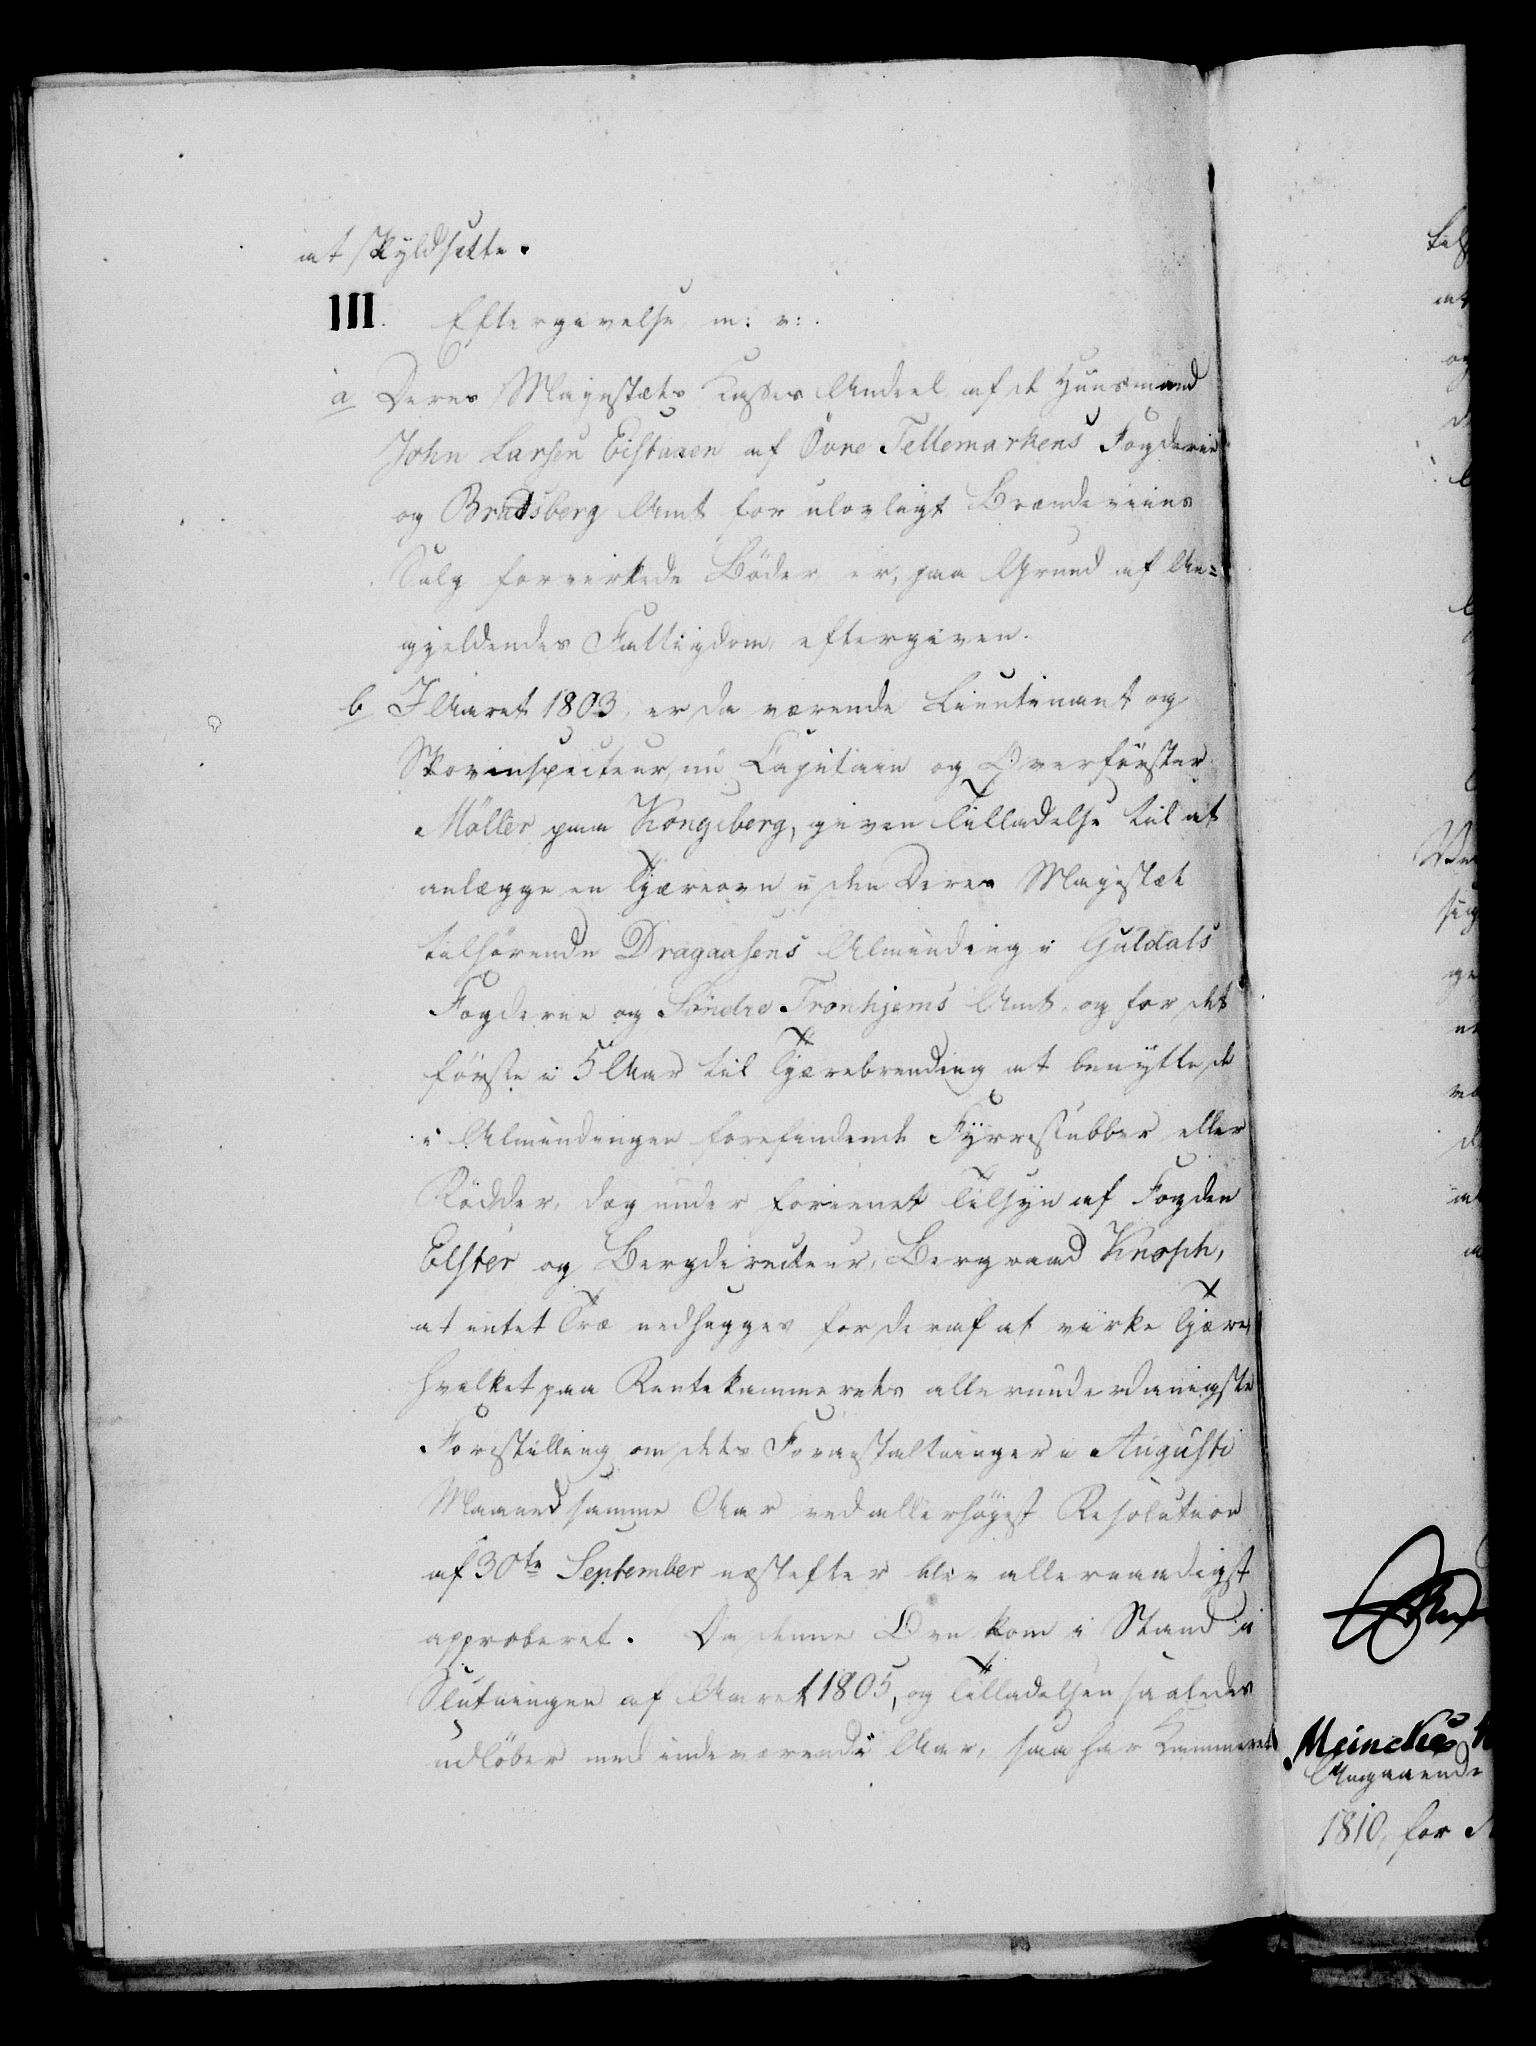 at skyldsette.
III. Eftergivelse m: v:.
a Deres Majestæts Kasses Andeel af de Huusmand
John Larsen Eistuaen af Övre Tellemarkens Fogderie
og Bradsberg Amt for ulovligt Brændeviins
Salg forvirkede Böder er, paa Grund af An=
gjeldendes Fattigdom, eftergiven.
b I Aaret 1803, er da værende Lieutinant og
Skovinspecteur, nu Capitain og Overförster
Möller paa Kongsberg, given Tilladelse til at
anlægge en Tjæreovn i den Deres Majestæt
tilhörende Dragaasens Alminding i Guldals
Fogderie og Söndre Tronhjems Amt, og for det
förste i 5 Aar til Tjærebrending at benytte de
i Almindingen forefindende Fyrrestubber eller
Rödder, dog under forienet Tilsyn af Fogden
Elster og Bergdirecteur, Bergraad Knoph,
at intet Træ nedhugges for deraf at virke Tjære,
hvilket paa Rentekammerets allerunderdanigste
Forestilling om dets Foranstaltninger i Augusti
Maaned samme Aar ved allerhöjest Resolution
af 30te September næstefter blev allernaadigst
approberet. Da denne Ovn kom i Stand i
Slutningen af Aaret 1805, og Tilladelsen saaledes
udlöber med indeværende Aar, saa har Kammeret
Meincke
Angaaende
1810, for